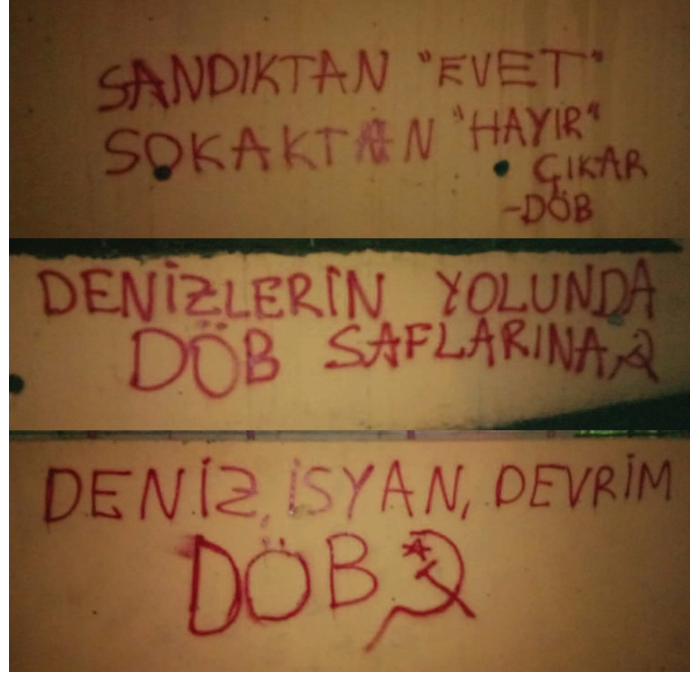 SANDIKTAN "EVET"
SOKAKTAN "HAYIR"
ÇIKAR
-DÖB
DENİZLERİN YOLUNDA
DÖB SAFLARINA
DENİZ, İSYAN, DEVRİM
DÖB